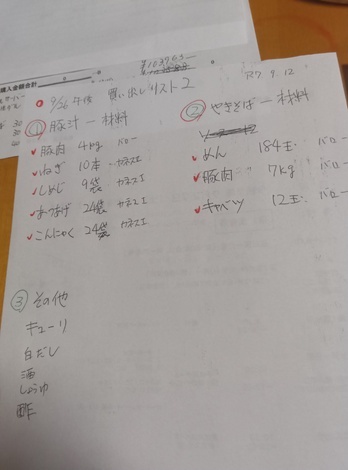 入会金総合計
¥103963
9/26 午後 買い出しリスト2
R7. 9. 12
① 豚汁ー材料
豚肉 4kg バロー
ねぎ 10本 カネスエ
しめじ 9袋 カネスエ
あつあげ 24袋 カネスエ
こんにゃく 24袋 カネスエ
② やきそばー材料
めん 184玉 バロー
豚肉 7kg バロー
キャベツ 12玉 バロー
③ その他
キューリ
白だし
酒
しょうゆ
酢